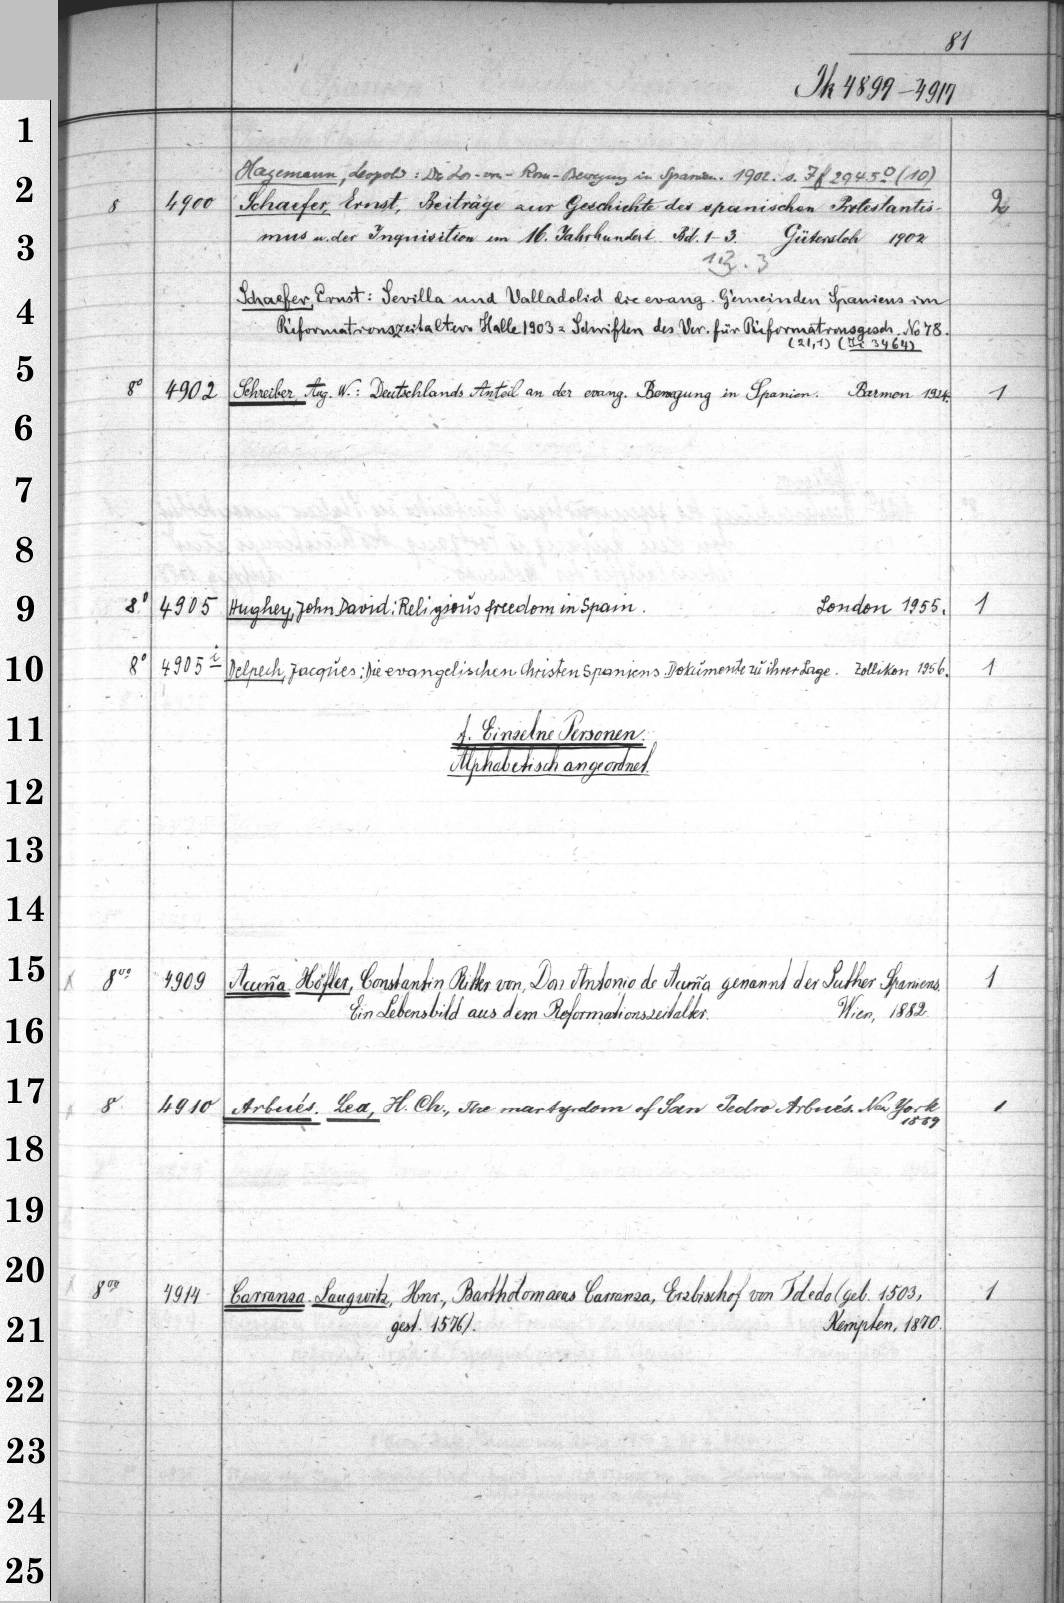 81
Ik 4899-4917
1
2
3
4
5
6
7
8
9
10
11
12
13
14
15
16
17
18
19
20
21
22
23
24
25
Hagemann, Leopold: Die Los-von-Rom-Bewegung in Spanien. 1902. s. If 2945° (10)
8 4900 Schaefer, Ernst, Beiträge zur Geschichte des spanischen Protestantis-
mus u. der Inquisition im 16. Jahrhundert Bd. 1-3. Gütersloh 1902
Schaefer, Ernst: Sevilla und Valladolid die evang. Gemeinden Spaniens im
Reformationszeitalter. Halle 1903 = Schriften des Ver. für Reformationsgesch. No 78.
(21,1) (Ii 3464)
8° 4902 Schreiber, Aug. W.: Deutschlands Anteil an der evang. Bewegung in Spanien. Barmen 1924. 1
8° 4905 Hughey, John David: Religious freedom in Spain. London 1955. 1
8° 4905 i Delpech, Jacques: Die evangelischen Christen Spaniens. Dokumente zu ihrer Lage. Zollikon 1956. 1
f. Einzelne Personen.
Alphabetisch angeordnet.
8vo 4909 Acuña. Höfler, Constantin Ritter von, Don Antonio de Acuña genannt der Luther Spaniens. 1
Ein Lebensbild aus dem Reformationszeitalter. Wien, 1882.
8 4910 Arbués. Lea, H. Ch., The martyrdom of San Pedro Arbués. New York 1
1889
8vo 4914 Carranza. Laugwitz, Hnr., Bartholomaeus Carranza, Erzbischof von Toledo (geb. 1503, 1
gest. 1576). Kempten, 1870.